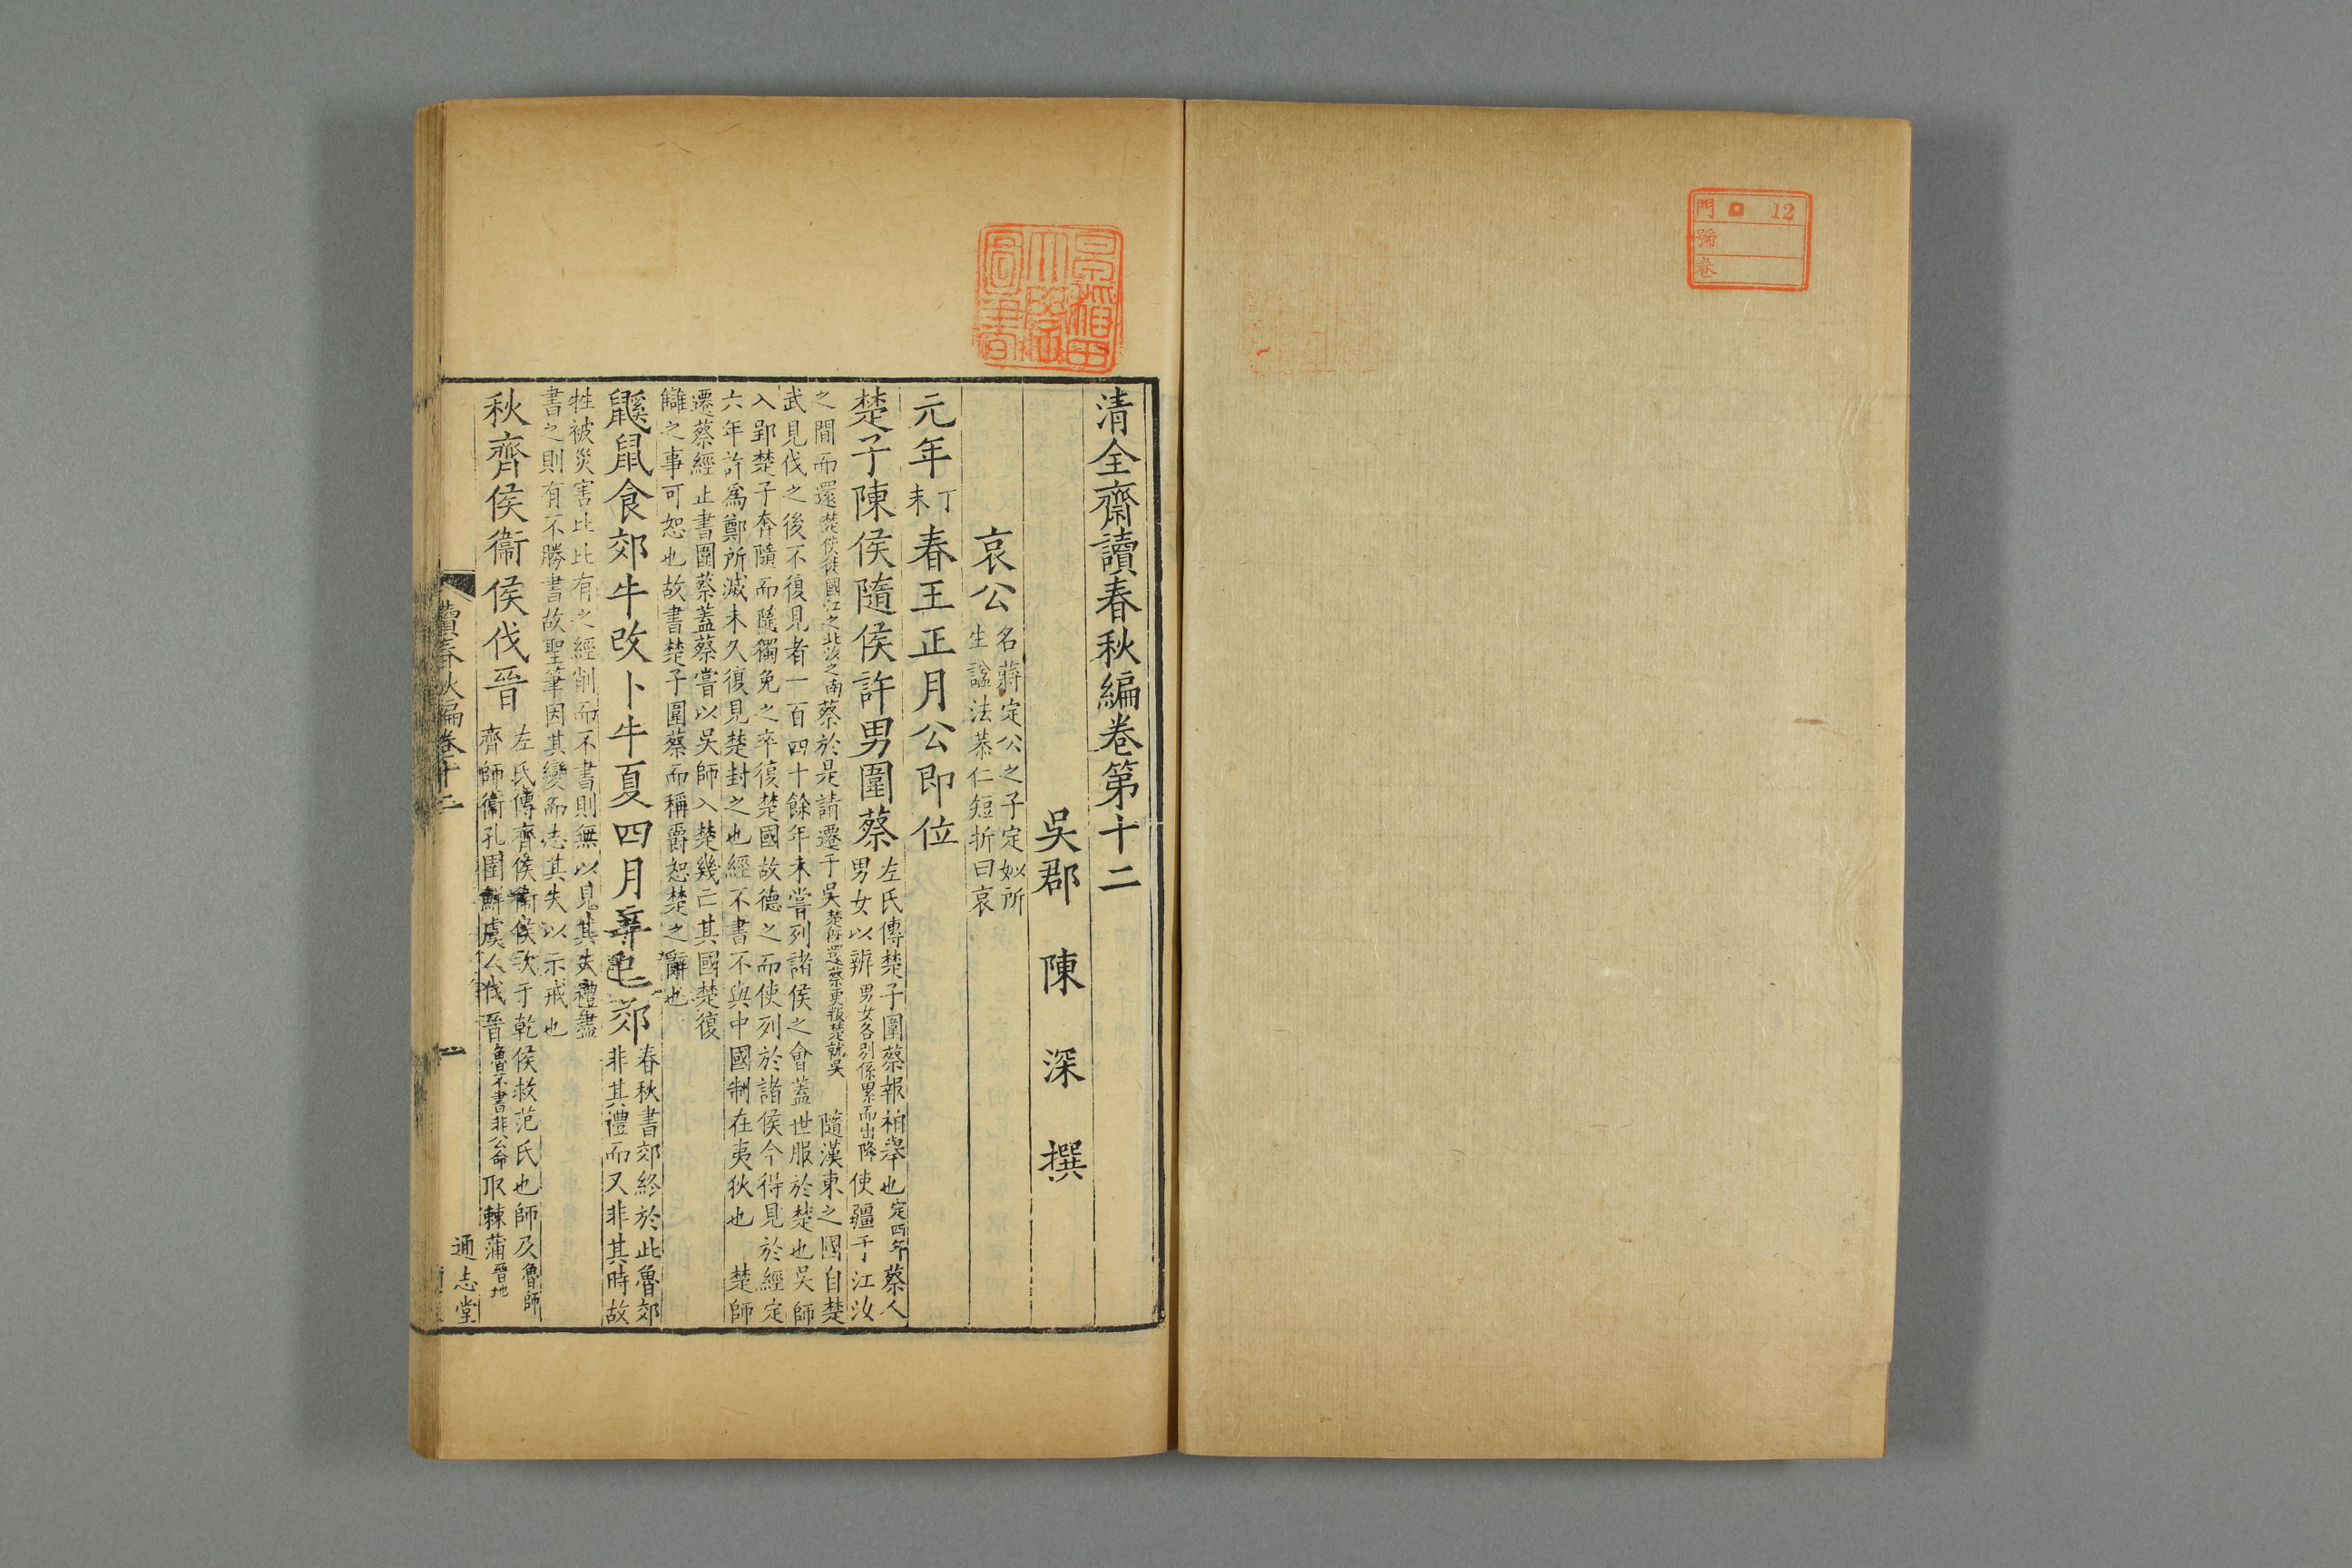 門 口 12
號
卷
早稲田
大學
圖書
清全齋讀春秋編卷第十二
吳郡 陳 深 撰
哀公
名蔣定公之子定姒所
生諡法恭仁短折曰哀
元年丁未春王正月公即位
楚子陳侯隨侯許男圍蔡
左氏傳楚子圍蔡報柏舉也定四年蔡人
男女以辨男女各別係累而出降使疆于江汝
之間而還楚使徙國江之北汝之南蔡於是請遷于吳楚旣還蔡更叛楚就吳 隨漢東之國自楚
武見伐之後不復見者一百四十餘年未嘗列諸侯之會蓋世服於楚也吳師
入郢楚子奔隨而隨獨免之卒復楚國故德之而使列於諸侯今得見於經定
六年許爲鄭所滅未久復見楚封之也經不書不與中國制在夷狄也 楚師
遷蔡經止書圍蔡蓋蔡嘗以吳師入楚幾亡其國楚復
讎之事可恕也故書楚子圍蔡而稱爵恕楚之辭也
鼷鼠食郊牛改卜牛夏四月辛巳郊
春秋書郊終於此魯郊
非其禮而又非其時故
牲被災害比比有之經削而不書則無以見其失禮盡
書之則有不勝書故聖筆因其變而志其失以示戒也
秋齊侯衞侯伐晉
左氏傳齊侯衞侯次于乾侯救范氏也師及魯師
齊師衞孔圉鮮虞人伐晉魯不書非公命取棘蒲晉地
讀春秋編卷十二
一
通志堂